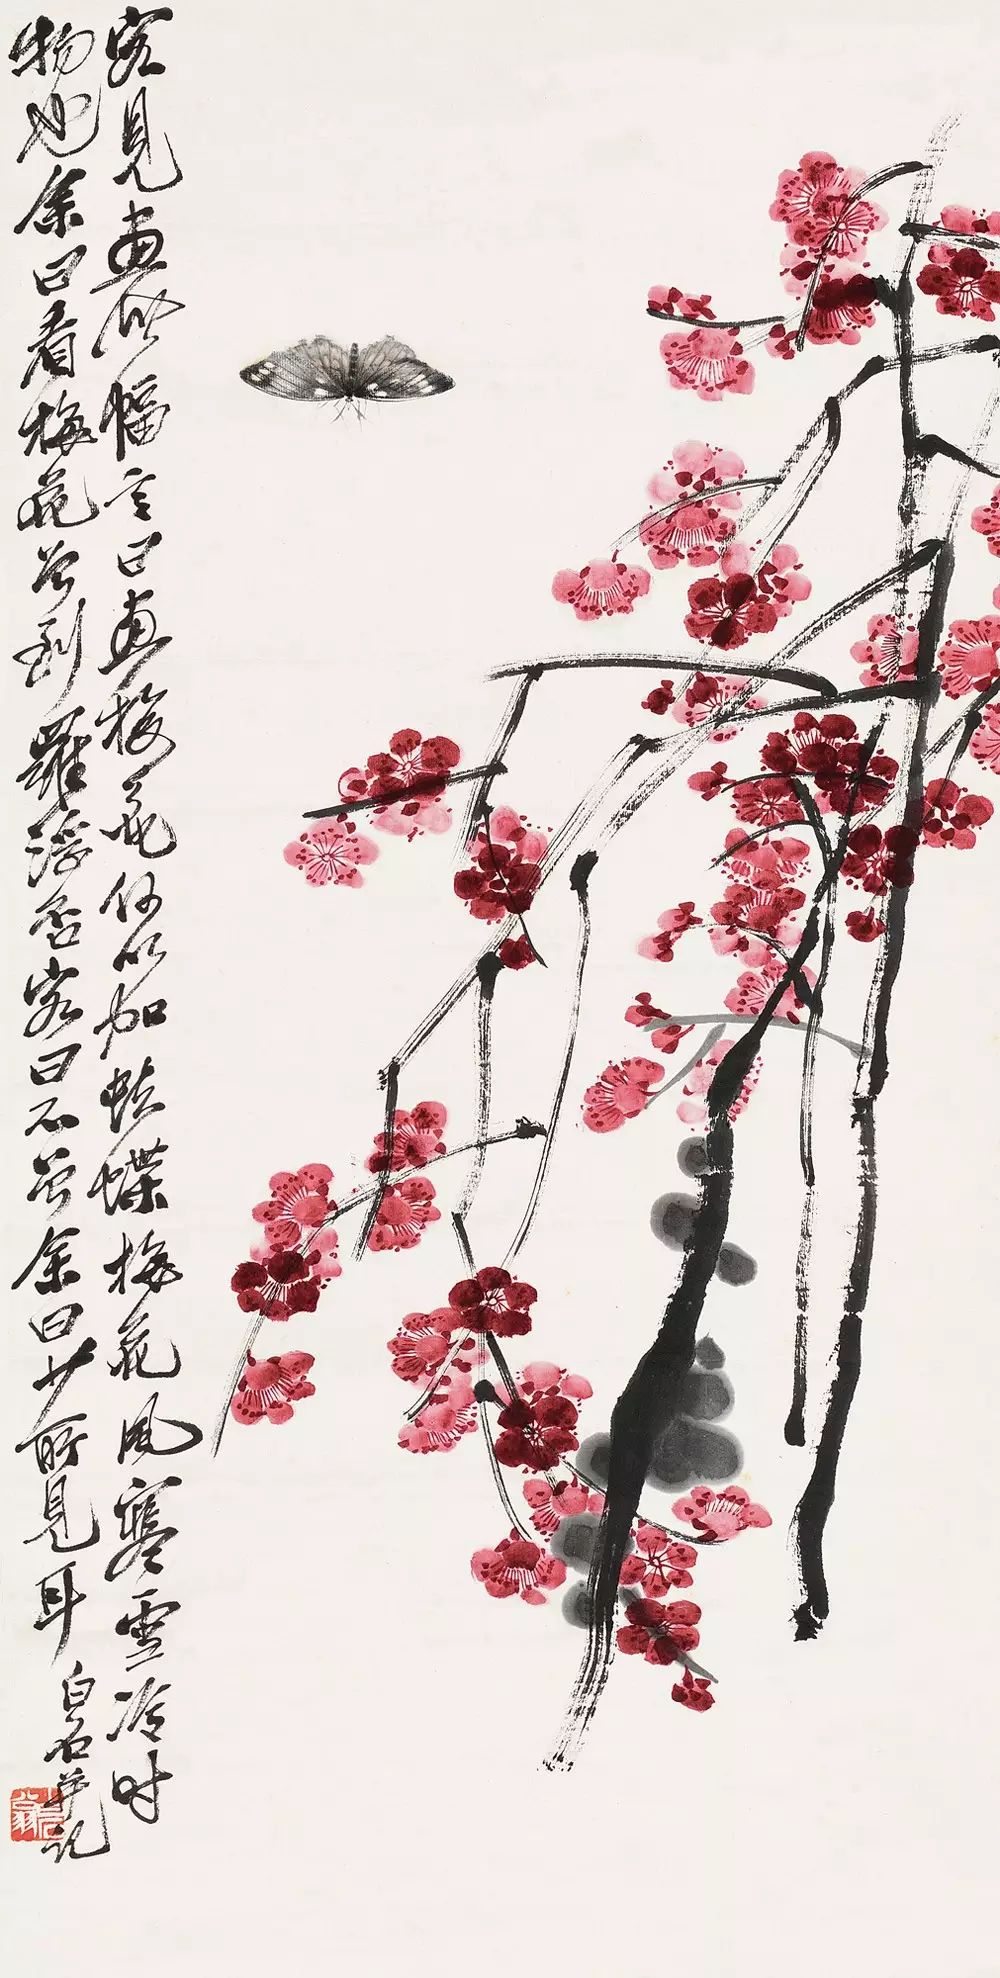 客見畫此幅言曰畫梅花何以加蛺蝶梅花風寒雪冷時
物也余曰看梅花曾到羅浮否客曰不曾余曰少所見耳
白石并記
白石翁